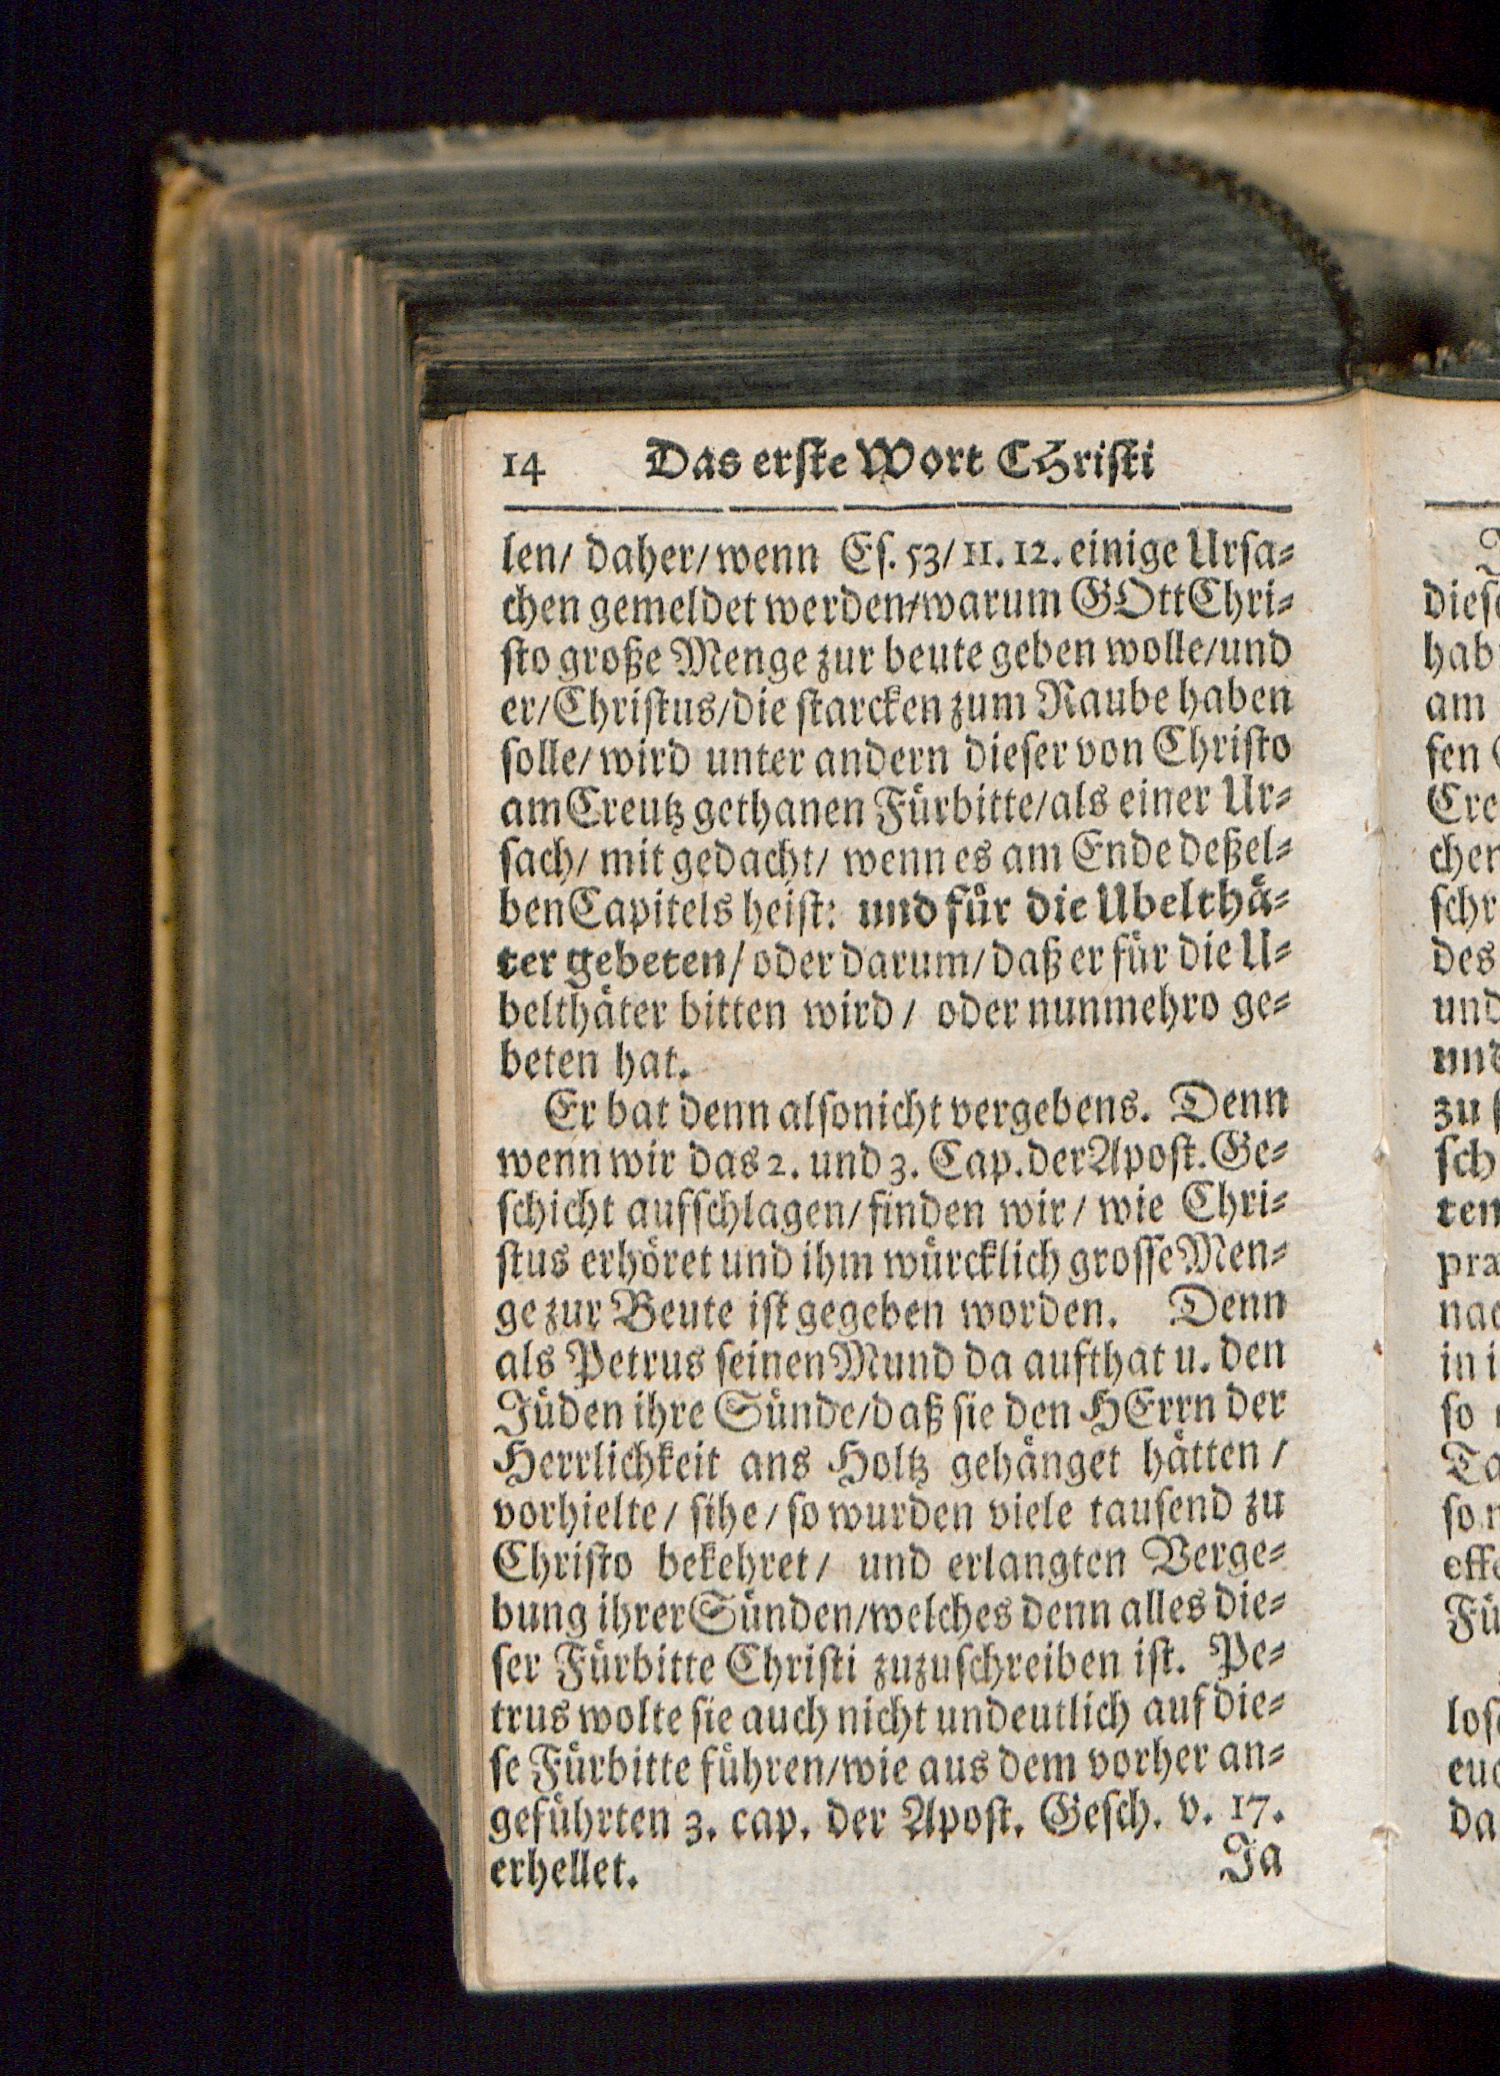 14 Das erste Wort CHristi
len/ daher/ wenn Es. 53/ 11. 12. einige Ursa-
chen gemeldet werden/ warum GOtt Chri-
sto große Menge zur beute geben wolle/ und
er/ Christus/ die starcken zum Raube haben
solle/ wird unter andern dieser von Christo
am Creutz gethanen Fürbitte/ als einer Ur-
sach/ mit gedacht/ wenn es am Ende deßel-
ben Capitels heist: und für die Ubelthä-
ter gebeten/ oder darum/ daß er für die U-
belthäter bitten wird/ oder nunmehro ge-
beten hat.
Er bat denn also nicht vergebens. Denn
wenn wir das 2. und 3. Cap. der Apost. Ge-
schicht aufschlagen/ finden wir/ wie Chri-
stus erhöret und ihm würcklich grosse Men-
ge zur Beute ist gegeben worden. Denn
als Petrus seinen Mund da aufthat u. den
Jüden ihre Sünde/ daß sie den HErrn der
Herrlichkeit ans Holtz gehänget hätten/
vorhielte/ sihe/ so wurden viele tausend zu
Christo bekehret/ und erlangten Verge-
bung ihrer Sünden/ welches denn alles die-
ser Fürbitte Christi zuzuschreiben ist. Pe-
trus wolte sie auch nicht undeutlich auf die-
se Fürbitte führen/ wie aus dem vorher an-
geführten 3. cap. der Apost. Gesch. v. 17.
erhellet. Ja